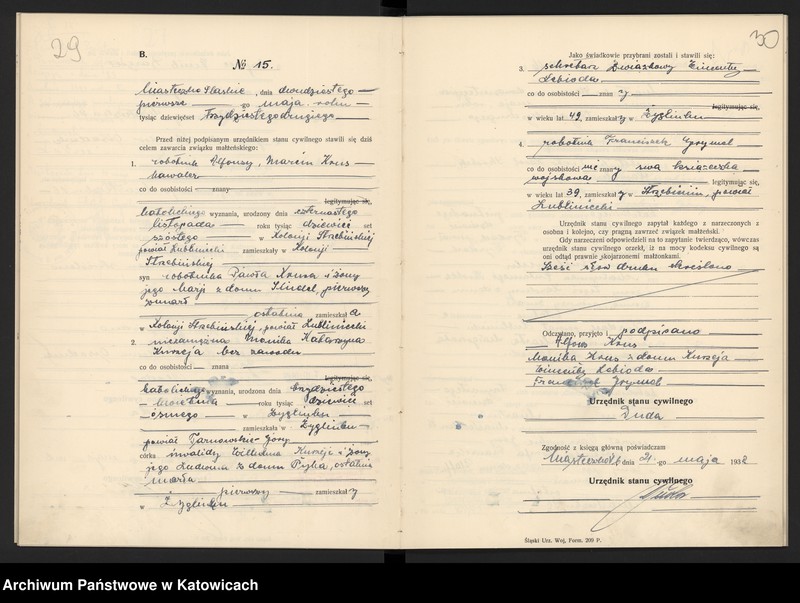 29
B.
№ 15.
Miasteczko Śląskie, dnia dwudziestego
pierwszego maja roku
tysiąc dziewięćset trzydziestego drugiego
Przed niżej podpisanym urzędnikiem stanu cywilnego stawili się dziś
celem zawarcia związku małżeńskiego:
1. robotnik Alfons, Marcin Krus
kawaler
co do osobistości znany
legitymując się,
katolickiego wyznania, urodzony dnia czternastego
listopada roku tysiąc dziewięć set
szóstego w Kolonji Strzebińskiej
powiat Lubliniecki zamieszkały w Kolonji
Strzebińskiej
syn robotnika Pawła Krusa i żony
jego Marji z domu pierwszy
zmarł
ostatnia zamieszkała
w Kolonji Strzebińskiej, powiat Lubliniecki
2. niezamężna Monika Katarzyna
Kurzeja bez zawodu
co do osobistości znana
legitymując się,
katolickiego wyznania, urodzona dnia trzydziestego
kwietnia roku tysiąc dziewięć set
ósmego w Żyglinku
zamieszkała w Żyglinku
powiat Tarnowskie-Góry
córka inwalidy Wilhelma Kurzeji i żony
jego Ludwina z domu Pyka, ostatnia
zmarła
pierwszy zamieszkały
w Żyglinku
30
Jako świadkowie przybrani zostali i stawili się:
3. sekretarz Związkowy Tymoteusz
Lebioda
co do osobistości znany
legitymując się,
w wieku lat 42, zamieszkały w Żyglinku
4. robotnik Franciszek
co do osobistości nieznany swą książeczką
wojskową legitymując się,
w wieku lat 39, zamieszkały w Strzebiniu, powiat
Lubliniecki
Urzędnik stanu cywilnego zapytał każdego z narzeczonych z
osobna i kolejno, czy pragną zawrzeć związek małżeński.
Gdy narzeczeni odpowiedzieli na to zapytanie twierdząco, wówczas
urzędnik stanu cywilnego orzekł, iż na mocy kodeksu cywilnego są
oni odtąd prawnie skojarzonemi małżonkami.
Sześć słów druku skreślono
Odczytano, przyjęto i podpisano
Alfons Krus
Monika Krus z domu Kurzeja
Lebioda
Franciszek
Urzędnik stanu cywilnego
Duda
Zgodność z księgą główną poświadczam
dnia 21. go maja 1932
Urzędnik stanu cywilnego
Duda
Śląski Urz. Woj. Form. 209 P.
Archiwum Państwowe w Katowicach